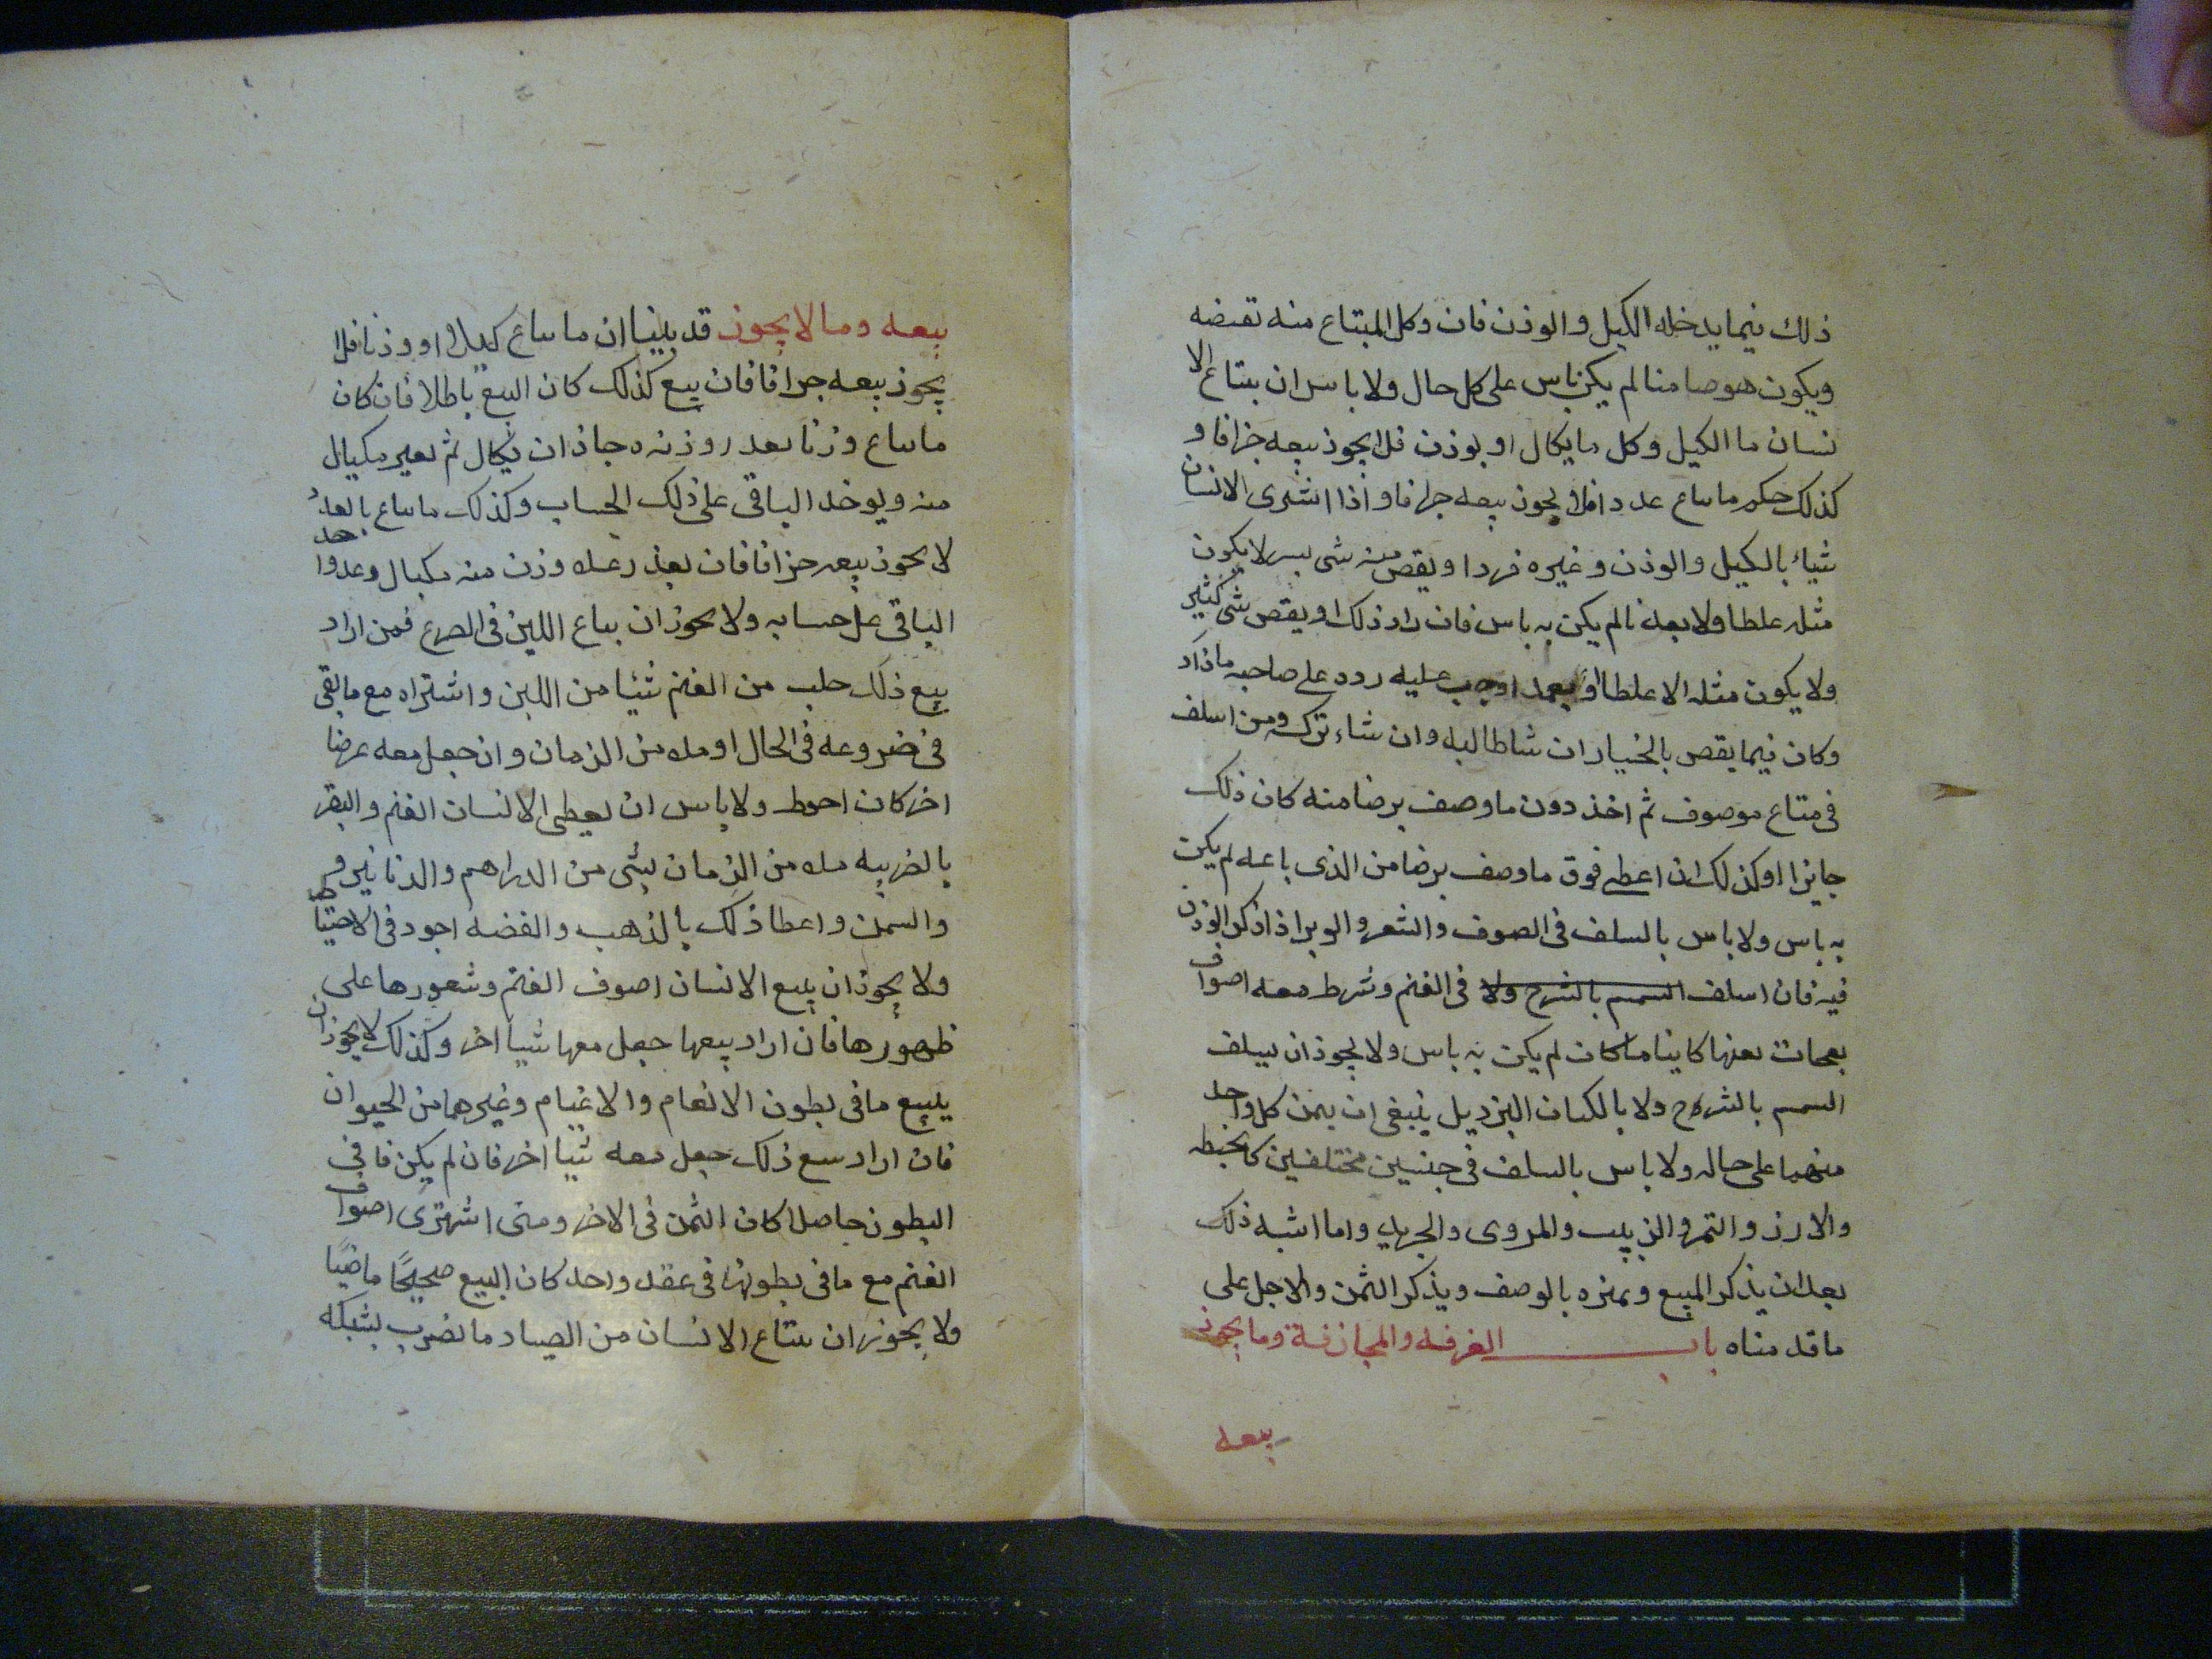 ذلك فيما يدخله الكيل والوذن فان وكل المبتاع منه تقبضه
ويكون هو ضامنا لم يكن باس على كل حال ولا باس ان يبتاع الا
نسان ما الكيل وكل ما يكال او يوذن فلا يجوذ بيعه جزافا و
كذلك حكم ما يباع عددا فلا يجوذ بيعه جزافا واذا اشترى الانسان
شياء بالكيل والوذن وغيره فردا ويقص منه شى يسير لا يكون
مثله غلطا ولا بعدنا لم يكن به باس فان زاد ذلك او يقص شى كثير
ولا يكون مثله الا غلطا او بعمدا وجب عليه ردد على صاحبه ماذاد
وكان فيما يقص بالخيار ان شا طالبه وان شاء تركه ومن اسلف
فى متاع موصوف ثم اخذ دون ما وصف برضا منه كان ذلك
جايزا اوكذلك ان اعطى فوق ما وصف برضا من الذى باعه لم يكن
به باس ولا باس بالسلف فى الصوف والشعر والوبر اذا ذكر الوذن
فيه فان اسلف السمسم بالشرح ولا فى الغنم وشرط معه اصواف
نعجات بعنها كاينا ما كان لم يكن به باس ولا يجوذ ان يسلف
السمسم بالشرح ولا بالكتان البزر بل ينبغى ان يثمن كل واحد
منهما على حاله ولا باس بالسلف فى جنسين مختلفين كالحنطه
والارذ والتمر والزبيب والمروى والحرير واما اشبه ذلك
بعد ان يذكر المبيع ويميزه بالوصف ويذكر الثمن والاجل على
ما قدمناه باب الغرفه والمجازفة وما يجوز
بيعه
بيعه وما لا يجوز قد بينا ان ما يباع كيلا او وذنا فلا
يجوذ بيعه جزافا فان بيع كذلك كان البيع باطلا فان كان
ما يباع وزنا بعدر وذنه جاذ ان يكال ثم يعير مكيال
منه ويوخد الباقى على ذلك الحساب وكذلك ما يباع بالعد
لا يجوذ بيعه جزافا فان تعذر عده وزن منه مكيال وعد واحد
الباقى على حسابه ولا يجوز ان يباع اللبن فى الضرع فمن اراد
بيع ذلك حلب من الغنم شيئا من اللبن واشتراه مع ما بقى
فى ضروعه فى الحال او مده من الزمان وان جعل معه عرضا
اخر كان احوط ولا باس ان يعطى الانسان الغنم والبقر
بالضريبه مده من الزمان بشى من الدراهم والدنانير و
والسمن واعطا ذلك بالذهب والفضه اجود فى الاحتياط
ولا يجوذ ان يبيع الانسان اصوف الغنم وشعورها على
ظهورها فان اراد بيعها جعل معها شيا اخر وكذلك لا يجوز ان
يبيع ما فى بطون الانعام والاغيام وغيرهما من الحيوان
فان اراد بيع ذلك جعل معه شيا اخر فان لم يكن ما فى
البطون حاصلا كان الثمن فى الاخر ومتى اشترى اصواف
الغنم مع ما فى بطونها فى عقد واحد كان البيع صحيحًا ماضيًا
ولا يجوز ان يبتاع الانسان من الصياد ما يضرب بشبكه